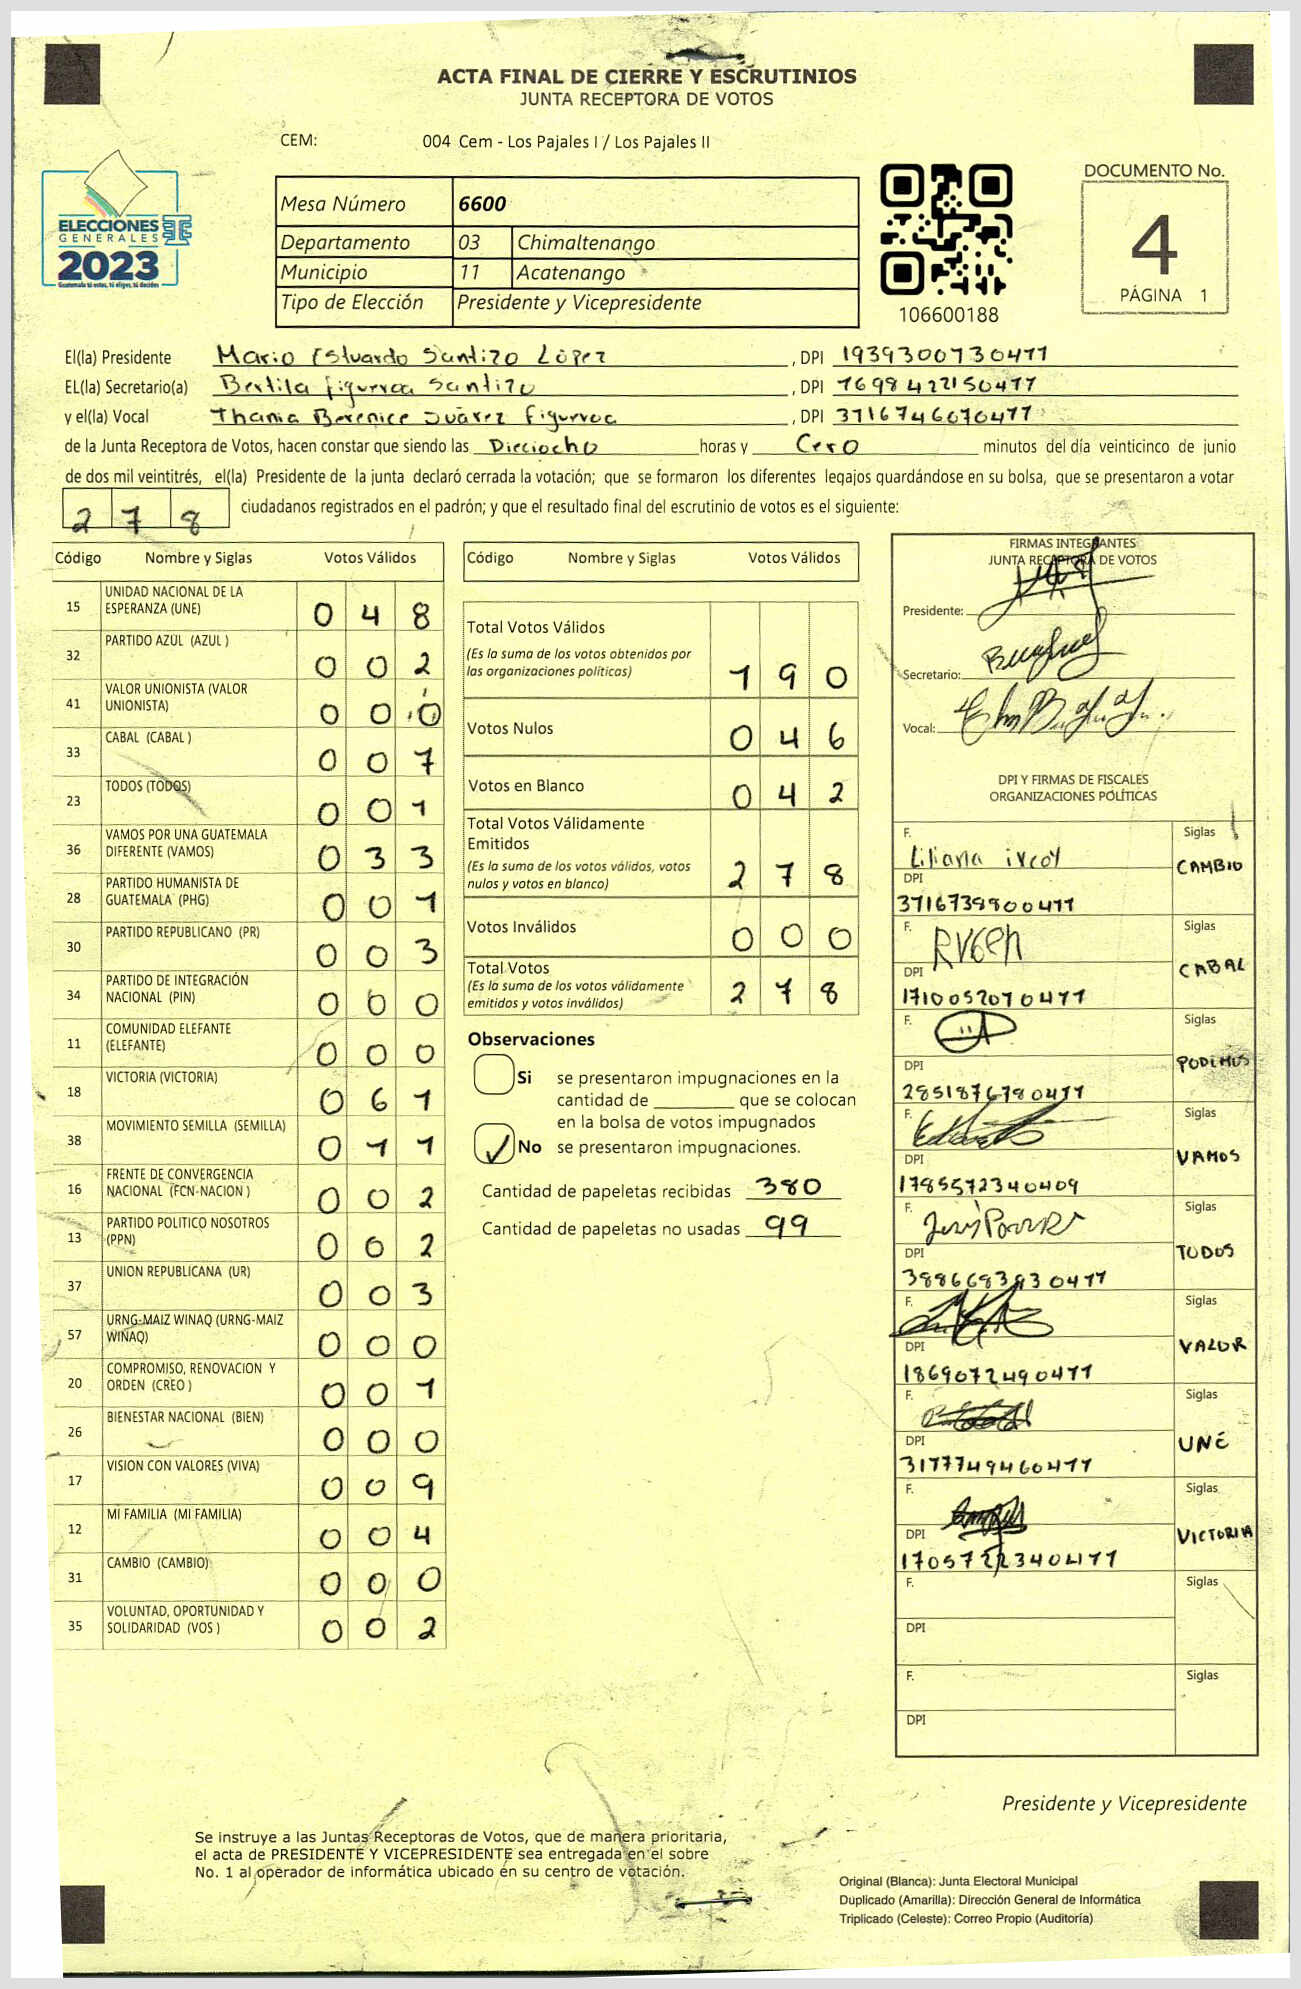 ACTA FINAL DE CIERRE Y ESCRUTINIOS
JUNTA RECEPTORA DE VOTOS
CEM: 004 Cem - Los Pajales I / Los Pajales II
ELECCIONES
GENERALES
2023
Guatemala tú votas, tú eliges, tú decides
Mesa Número 6600
Departamento 03 Chimaltenango
Municipio 11 Acatenango
Tipo de Elección Presidente y Vicepresidente
106600188
DOCUMENTO No.
4
PÁGINA 1
El(la) Presidente Mario Estuardo Santizo López , DPI 1939300730411
EL(la) Secretario(a) Bertila figueroa Santizo , DPI 1698422150411
y el(la) Vocal Thania Berenice Juárez figueroa , DPI 3716746070411
de la Junta Receptora de Votos, hacen constar que siendo las Dieciocho horas y Cero minutos del día veinticinco de junio
de dos mil veintitrés, el(la) Presidente de la junta declaró cerrada la votación; que se formaron los diferentes legajos guardándose en su bolsa, que se presentaron a votar
278 ciudadanos registrados en el padrón; y que el resultado final del escrutinio de votos es el siguiente:
Código Nombre y Siglas Votos Válidos
15 UNIDAD NACIONAL DE LA ESPERANZA (UNE) 048
32 PARTIDO AZUL (AZUL ) 002
41 VALOR UNIONISTA (VALOR UNIONISTA) 000
33 CABAL (CABAL ) 007
23 TODOS (TODOS) 001
36 VAMOS POR UNA GUATEMALA DIFERENTE (VAMOS) 033
28 PARTIDO HUMANISTA DE GUATEMALA (PHG) 001
30 PARTIDO REPUBLICANO (PR) 003
34 PARTIDO DE INTEGRACIÓN NACIONAL (PIN) 000
11 COMUNIDAD ELEFANTE (ELEFANTE) 000
18 VICTORIA (VICTORIA) 061
38 MOVIMIENTO SEMILLA (SEMILLA) 011
16 FRENTE DE CONVERGENCIA NACIONAL (FCN-NACION ) 002
13 PARTIDO POLITICO NOSOTROS (PPN) 002
37 UNION REPUBLICANA (UR) 003
57 URNG-MAIZ WINAQ (URNG-MAIZ WINAQ) 000
20 COMPROMISO, RENOVACION Y ORDEN (CREO ) 001
26 BIENESTAR NACIONAL (BIEN) 000
17 VISION CON VALORES (VIVA) 009
12 MI FAMILIA (MI FAMILIA) 004
31 CAMBIO (CAMBIO) 000
35 VOLUNTAD, OPORTUNIDAD Y SOLIDARIDAD (VOS ) 002
Código Nombre y Siglas Votos Válidos
Total Votos Válidos 190
(Es la suma de los votos obtenidos por
las organizaciones políticas)
Votos Nulos 046
Votos en Blanco 042
Total Votos Válidamente
Emitidos 278
(Es la suma de los votos válidos, votos
nulos y votos en blanco)
Votos Inválidos 000
Total Votos 278
(Es la suma de los votos válidamente
emitidos y votos inválidos)
Observaciones
Si se presentaron impugnaciones en la
cantidad de ________ que se colocan
en la bolsa de votos impugnados
No se presentaron impugnaciones.
Cantidad de papeletas recibidas 380
Cantidad de papeletas no usadas 99
FIRMAS INTEGRANTES
JUNTA RECEPTORA DE VOTOS
Presidente:
Secretario:
Vocal:
DPI Y FIRMAS DE FISCALES
ORGANIZACIONES POLÍTICAS
F. Liliana ixcoy Siglas
DPI CAMBIO
3716739800411
F. Siglas
DPI CABAL
1710052070411
F. Siglas
DPI PODEMOS
2851876780411
F. Siglas
DPI VAMOS
1785572340409
F. Siglas
DPI TODOS
F. Siglas
DPI VALOR
1869072490411
F. Siglas
DPI UNE
3177749460411
F. Siglas
DPI VICTORIA
1705722340411
F. Siglas
DPI
F. Siglas
DPI
Presidente y Vicepresidente
Se instruye a las Juntas Receptoras de Votos, que de manera prioritaria,
el acta de PRESIDENTE Y VICEPRESIDENTE sea entregada en el sobre
No. 1 al operador de informática ubicado en su centro de votación.
Original (Blanca): Junta Electoral Municipal
Duplicado (Amarilla): Dirección General de Informática
Triplicado (Celeste): Correo Propio (Auditoría)